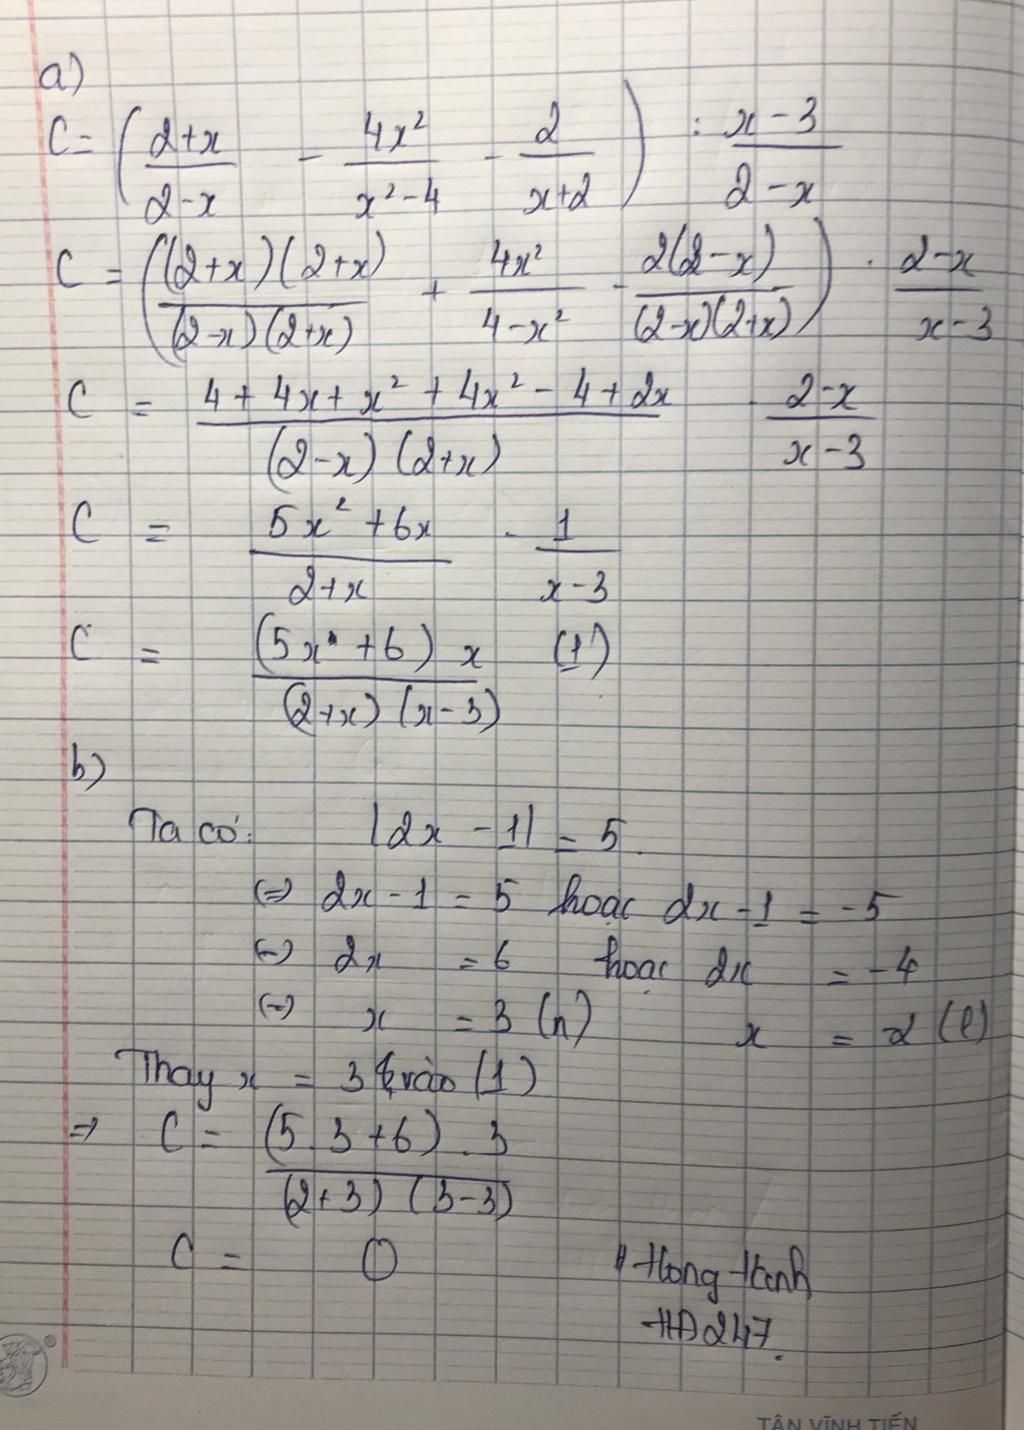 a)
C = ( (2+x)/(2-x) - 4x²/(x²-4) - 2/(x+2) ) : (x-3)/(2-x)
C = ( (2+x)(2+x)/(2-x)(2+x) + 4x²/(4-x²) - 2(2-x)/(2-x)(2+x) ) . (2-x)/(x-3)
C = (4+4x+x²+4x²-4+2x)/(2-x)(2+x) . (2-x)/(x-3)
C = (5x²+6x)/(2+x) . 1/(x-3)
C = (5x+6)x/(2+x)(x-3) (1)
b)
Ta có: |2x-1| = 5.
(=) 2x-1 = 5 hoặc 2x-1 = -5
(=) 2x = 6 hoặc 2x = -4
(=) x = 3 (n) x = 2 (l)
Thay x = 3 vào (1)
=> C = (5.3+6).3/(2+3)(3-3)
C = 0
HD247.
TÂN VĨNH TIẾN